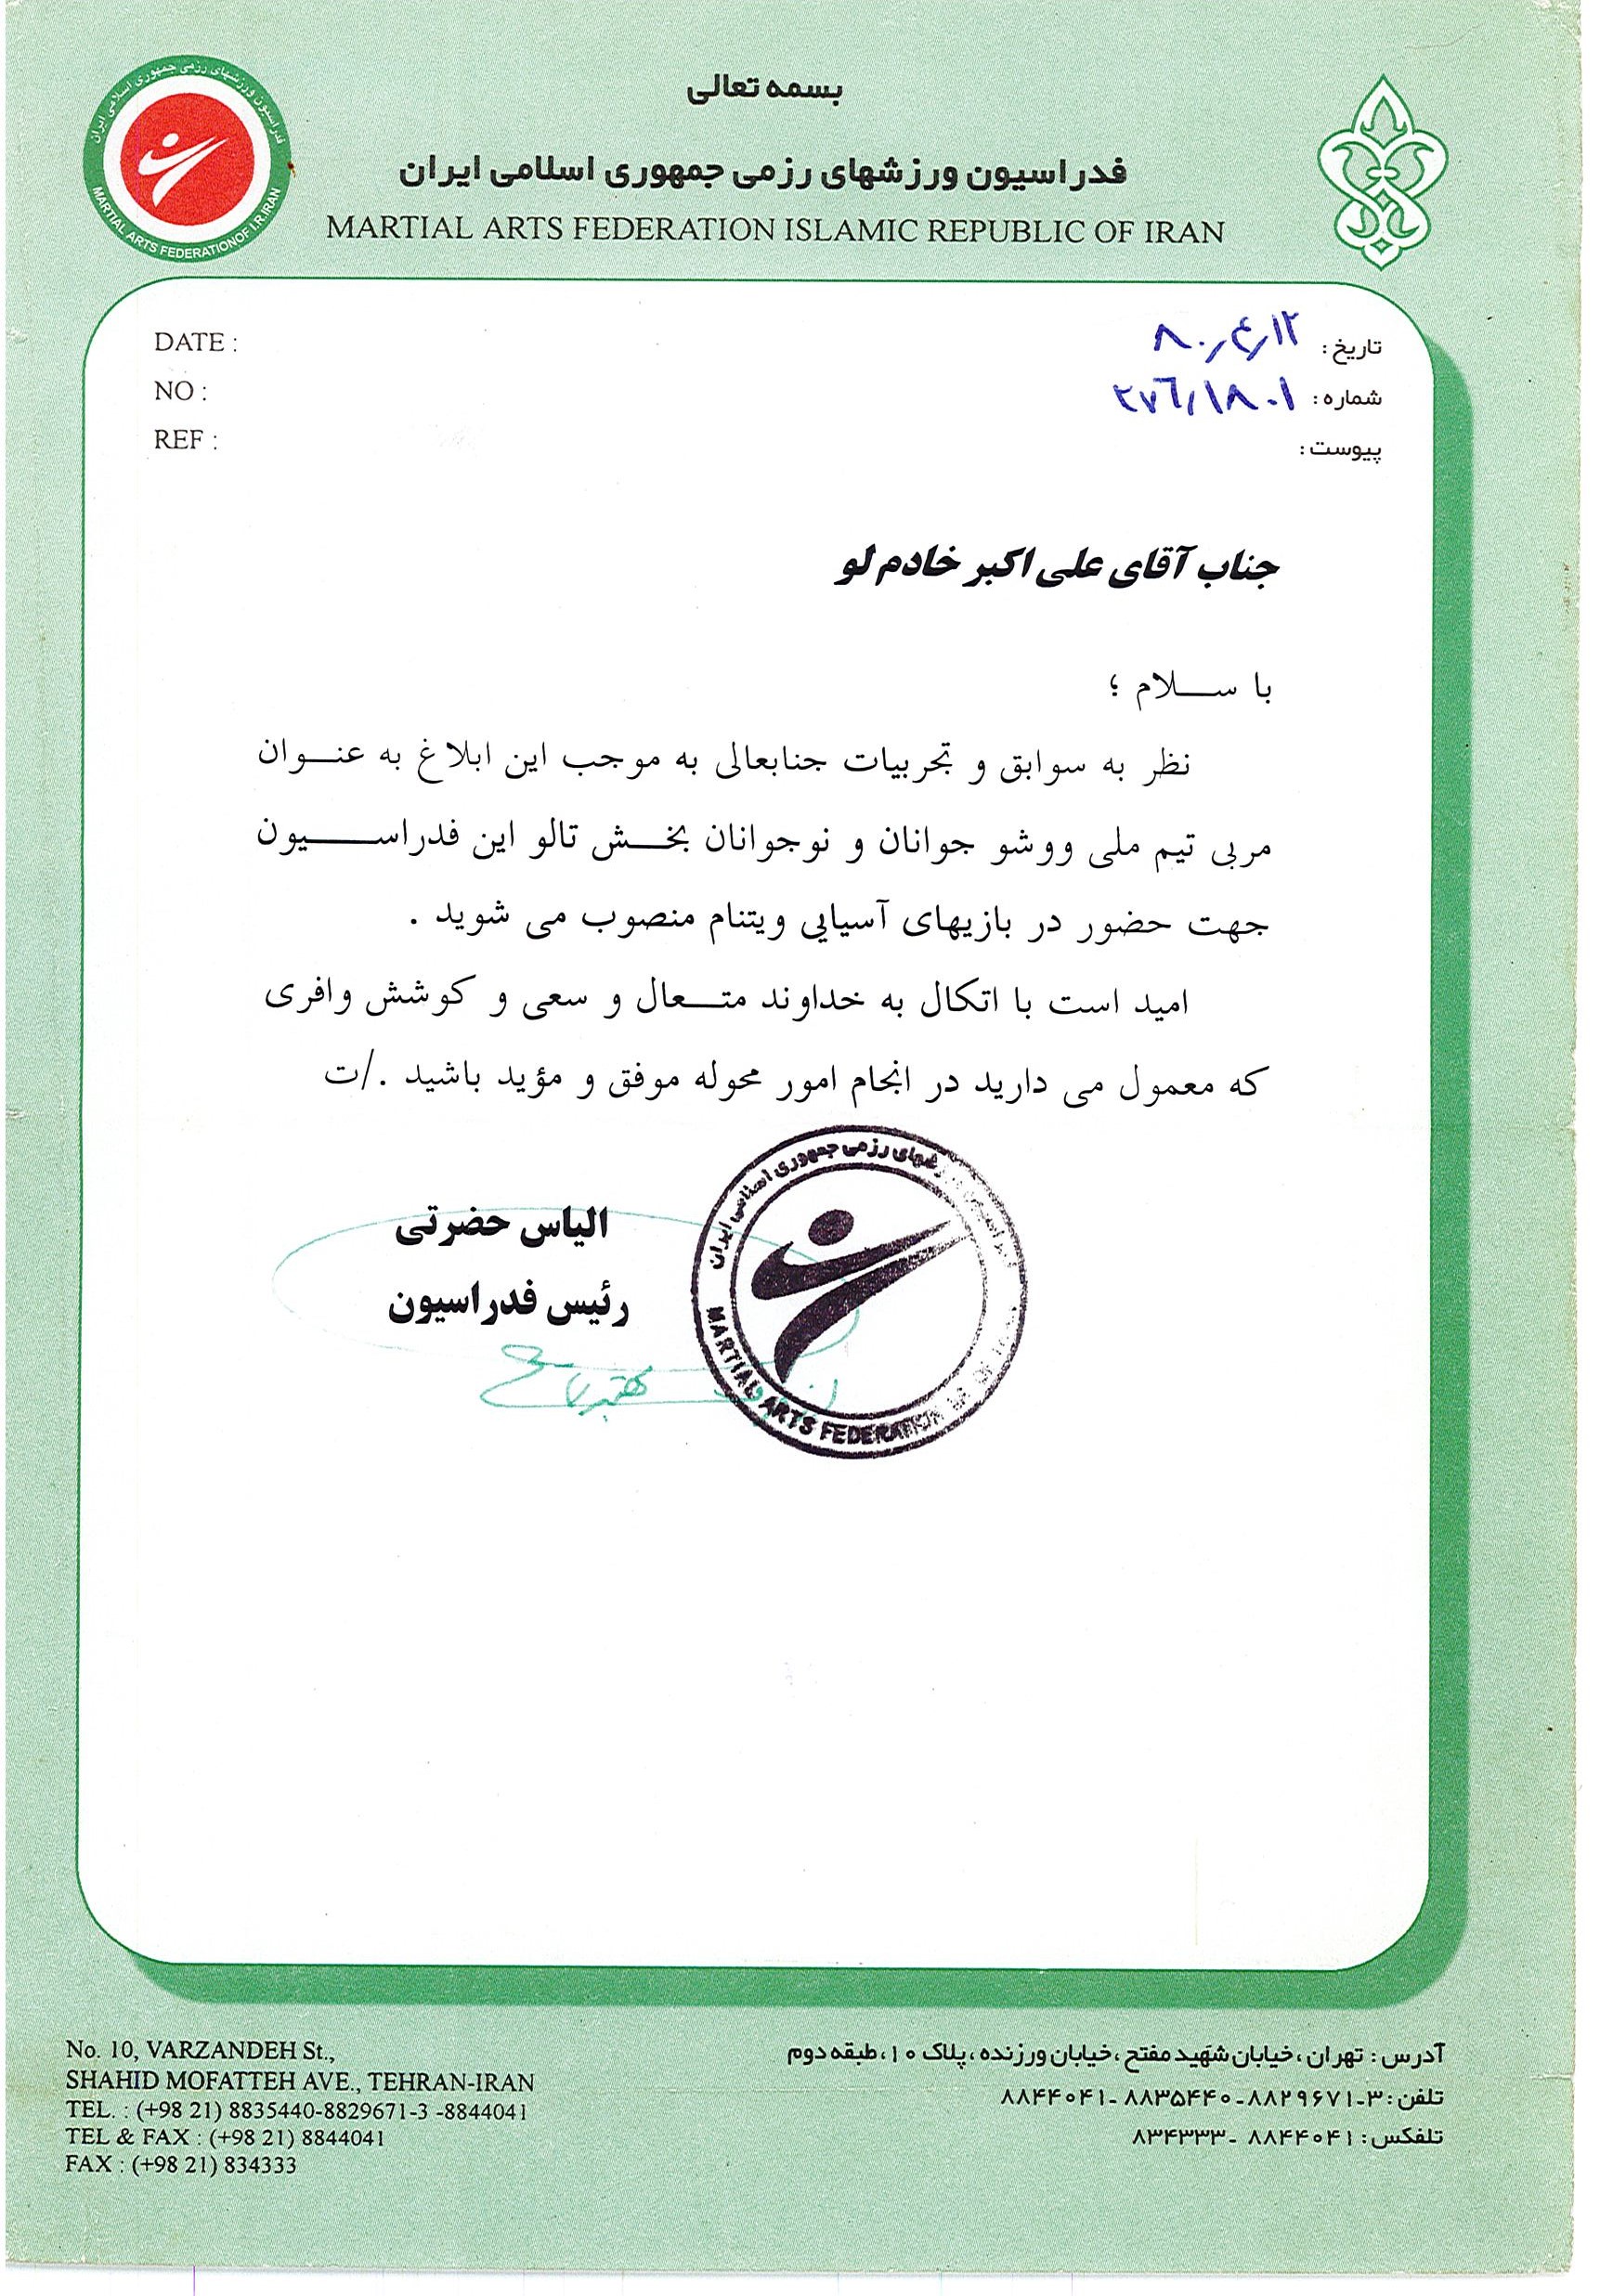 بسمه تعالی
فدراسیون ورزشهای رزمی جمهوری اسلامی ایران
MARTIAL ARTS FEDERATION ISLAMIC REPUBLIC OF IRAN
فدراسیون ورزشهای رزمی جمهوری اسلامی ایران
MARTIAL ARTS FEDERATION OF I.R.IRAN
تاریخ: ۸۰/۴/۱۲
شماره: ۲۷۶/۱۸۰۱
پیوست:
DATE :
NO :
REF :
جناب آقای علی اکبر خادم لو
با ســـلام ؛
نظر به سوابق و تجربیات جنابعالی به موجب این ابلاغ به عنـــوان
مربی تیم ملی ووشو جوانان و نوجوانان بخـــش تالو این فدراســـــیون
جهت حضور در بازیهای آسیایی ویتنام منصوب می شوید .
امید است با اتکال به خداوند متـــعال و سعی و کوشش وافری
که معمول می دارید در انجام امور محوله موفق و مؤید باشید ./ت
الیاس حضرتی
رئیس فدراسیون
رزمی جمهوری اسلامی ایران
MARTIAL ARTS FEDERATION
آدرس: تهران، خیابان شهید مفتح، خیابان ورزنده، پلاک ۱۰، طبقه دوم
تلفن: ۳-۸۸۲۹۶۷۱-۸۸۳۵۴۴۰-۸۸۴۴۰۴۱
تلفکس: ۸۸۴۴۰۴۱-۸۳۴۳۳۳
No. 10, VARZANDEH St.,
SHAHID MOFATTEH AVE., TEHRAN-IRAN
TEL. : (+98 21) 8835440-8829671-3 -8844041
TEL & FAX : (+98 21) 8844041
FAX : (+98 21) 834333